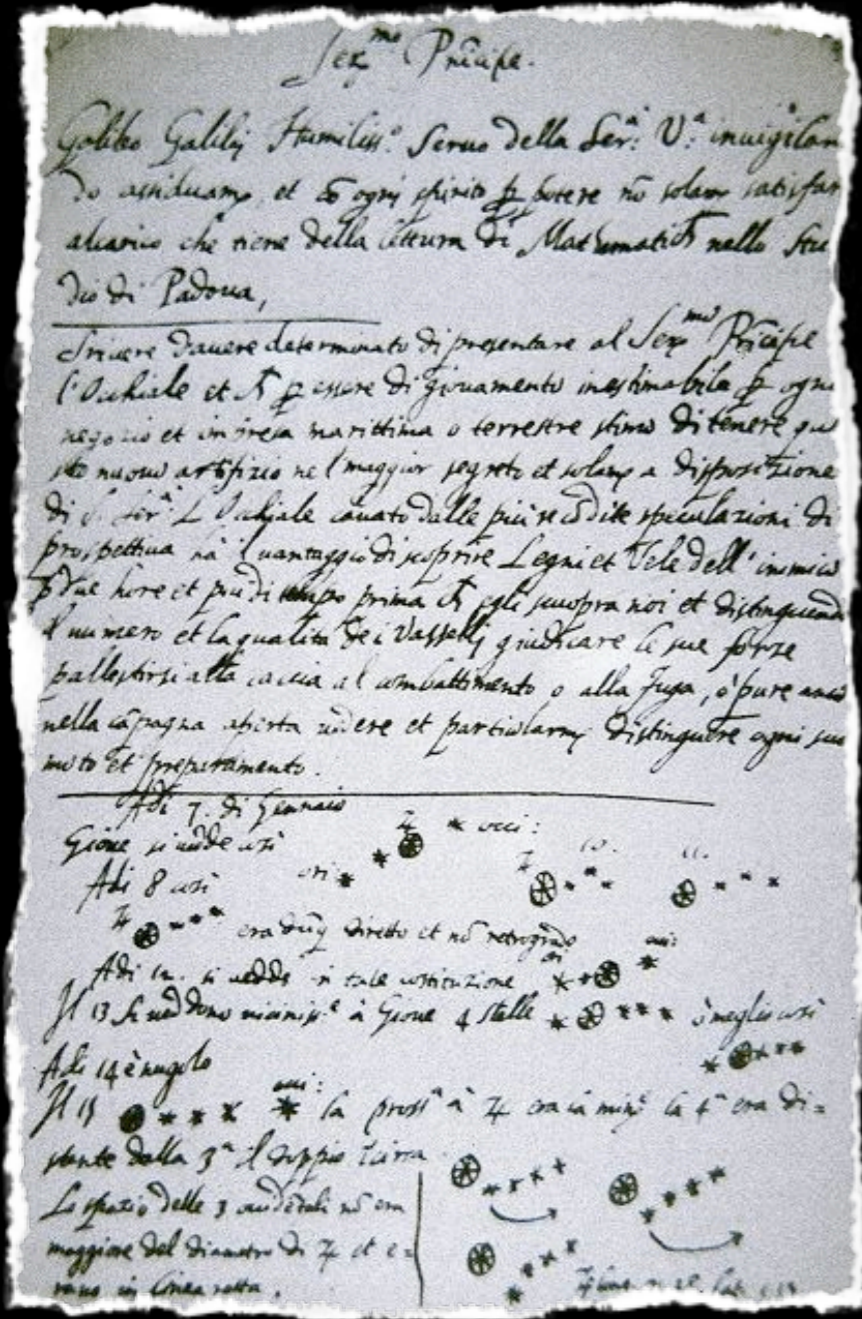 Ser.mo Prĩcipe.
Galileo Galilej Humiliss.o Seruo della Ser.a V.a inuigilan
do assiduam.e et cõ ogni spirito p potere nõ solam.e satisfar
alcarico che tiene della lettura di Mathematich nello Stu
dio di Padoua,
Scriuere dauere determinato di presentare al Ser.mo Prĩcipe
l'Occhiale et p essere di giouamento inestimabile p ogni
negozio et impresa marittima o terrestre stimo di tenere que
sto nuouo artifizio nel maggior segreto et solam.e a disposizione
di S. Ser.a L'Occhiale cauato dalle più recõdite speculazioni di
prospettiua hà il uantaggio di scoprire Legni et Vele dell'inimico
p due hore et più di tempo prima ch egli scuopra noi et distinguendo
il numero et la qualità dei Vasselli giudicare le sue forze
pallestirsi alla caccia al combattimento o alla fuga, ò pure anco
nella cãpagna aperta uedere et particularm.e distinguere ogni suo
moto et preparamento.
Adi 7. di Gennaio
Gioue si uede così ♃ * occ:
Adi 8 così ori * 10. 11.
♃ * * * era dũq diretto et nõ retrogrado
Adi 12. si uedde in tale costituzione
Il 13 si ueddono uiciniss.e à Gioue 4 stelle * * * * ò meglio così
Adi 14 è nugolo
Il 15 * * * * occ: la pross.a à ♃ era la min.e la 4.a era di=
stante dalla 3.a il doppio circa
Lo spazio delle 3 occidẽtali nõ era
maggiore del diametro di ♃ et e=
rano in linea retta.